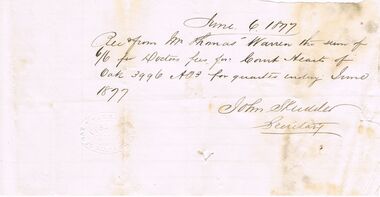 June 6 1877
Recd from Mr Thomas Warren the sum of
6/6 for Doctors fees for Court Heart of
Oak 3996 A.O.F for quarter ending June
1877
John
Secretary